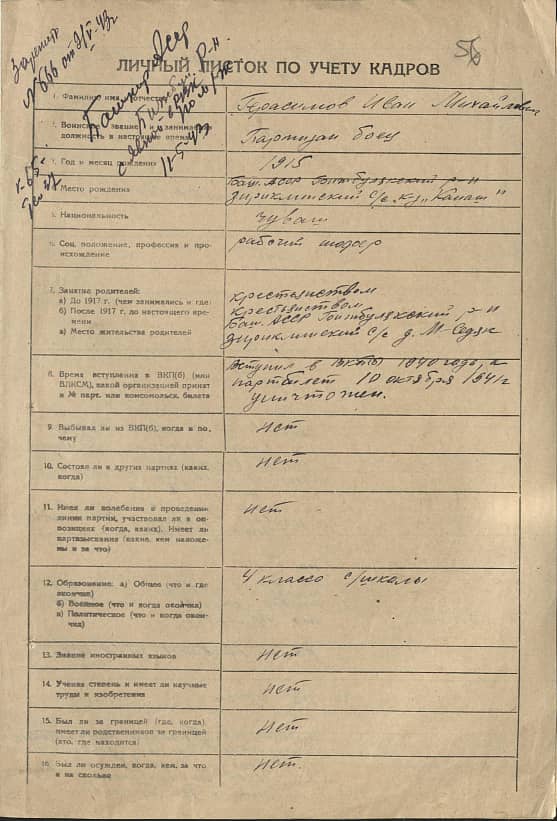 56
№ 666 от 21/V-43г
Башкир Асср
11-5-43г
ЛИЧНЫЙ ЛИСТОК ПО УЧЕТУ КАДРОВ
1. Фамилия, имя, отчество
Герасимов Иван Михайлович
2. Воинское звание и занимаемая
должность в настоящее время
Партизан боец
3. Год и месяц рождения
1915
4. Место рождения
Баш. АССР р-н
Зириклинский с/с к-з „Канаш"
5. Национальность
Чуваш
6. Соц. положение, профессия и про-
исхождение
рабочий шофер
7. Занятие родителей:
а) До 1917 г. (чем занимались и где)
б) После 1917 г. до настоящего вре-
мени
в) Место жительства родителей
крестьянством
крестьянством
Баш. АССР р-н
Зириклинский с/с д. М-Седяк
8. Время вступления в ВКП(б) (или
ВЛКСМ), какой организацией принят
и № парт. или комсомольск. билета
Вступил в 1940 года,
партбилет 10 октября 1941г
уничтожен.
9. Выбывал ли из ВКП(б), когда и по-
чему
нет
10. Состоял ли в других партиях (каких,
когда)
нет
11. Имел ли колебания в проведении
линии партии, участвовал ли в оп-
позициях (когда, каких). Имеет ли
партвзыскания (какие, кем наложе-
ны и за что)
нет
12. Образование: а) Общее (что и где
окончил)
б) Военное (что и когда окончил)
в) Политическое (что и когда окон-
чил)
4 класса с/школы
13. Знание иностранных языков
нет
14. Ученая степень и имеет ли научные
труды и изобретения
нет
15. Был ли за границей (где, когда),
имеет ли родственников за границей
(кто, где находится)
нет
16. Был ли осужден, когда, кем, за что
и на сколько
нет.